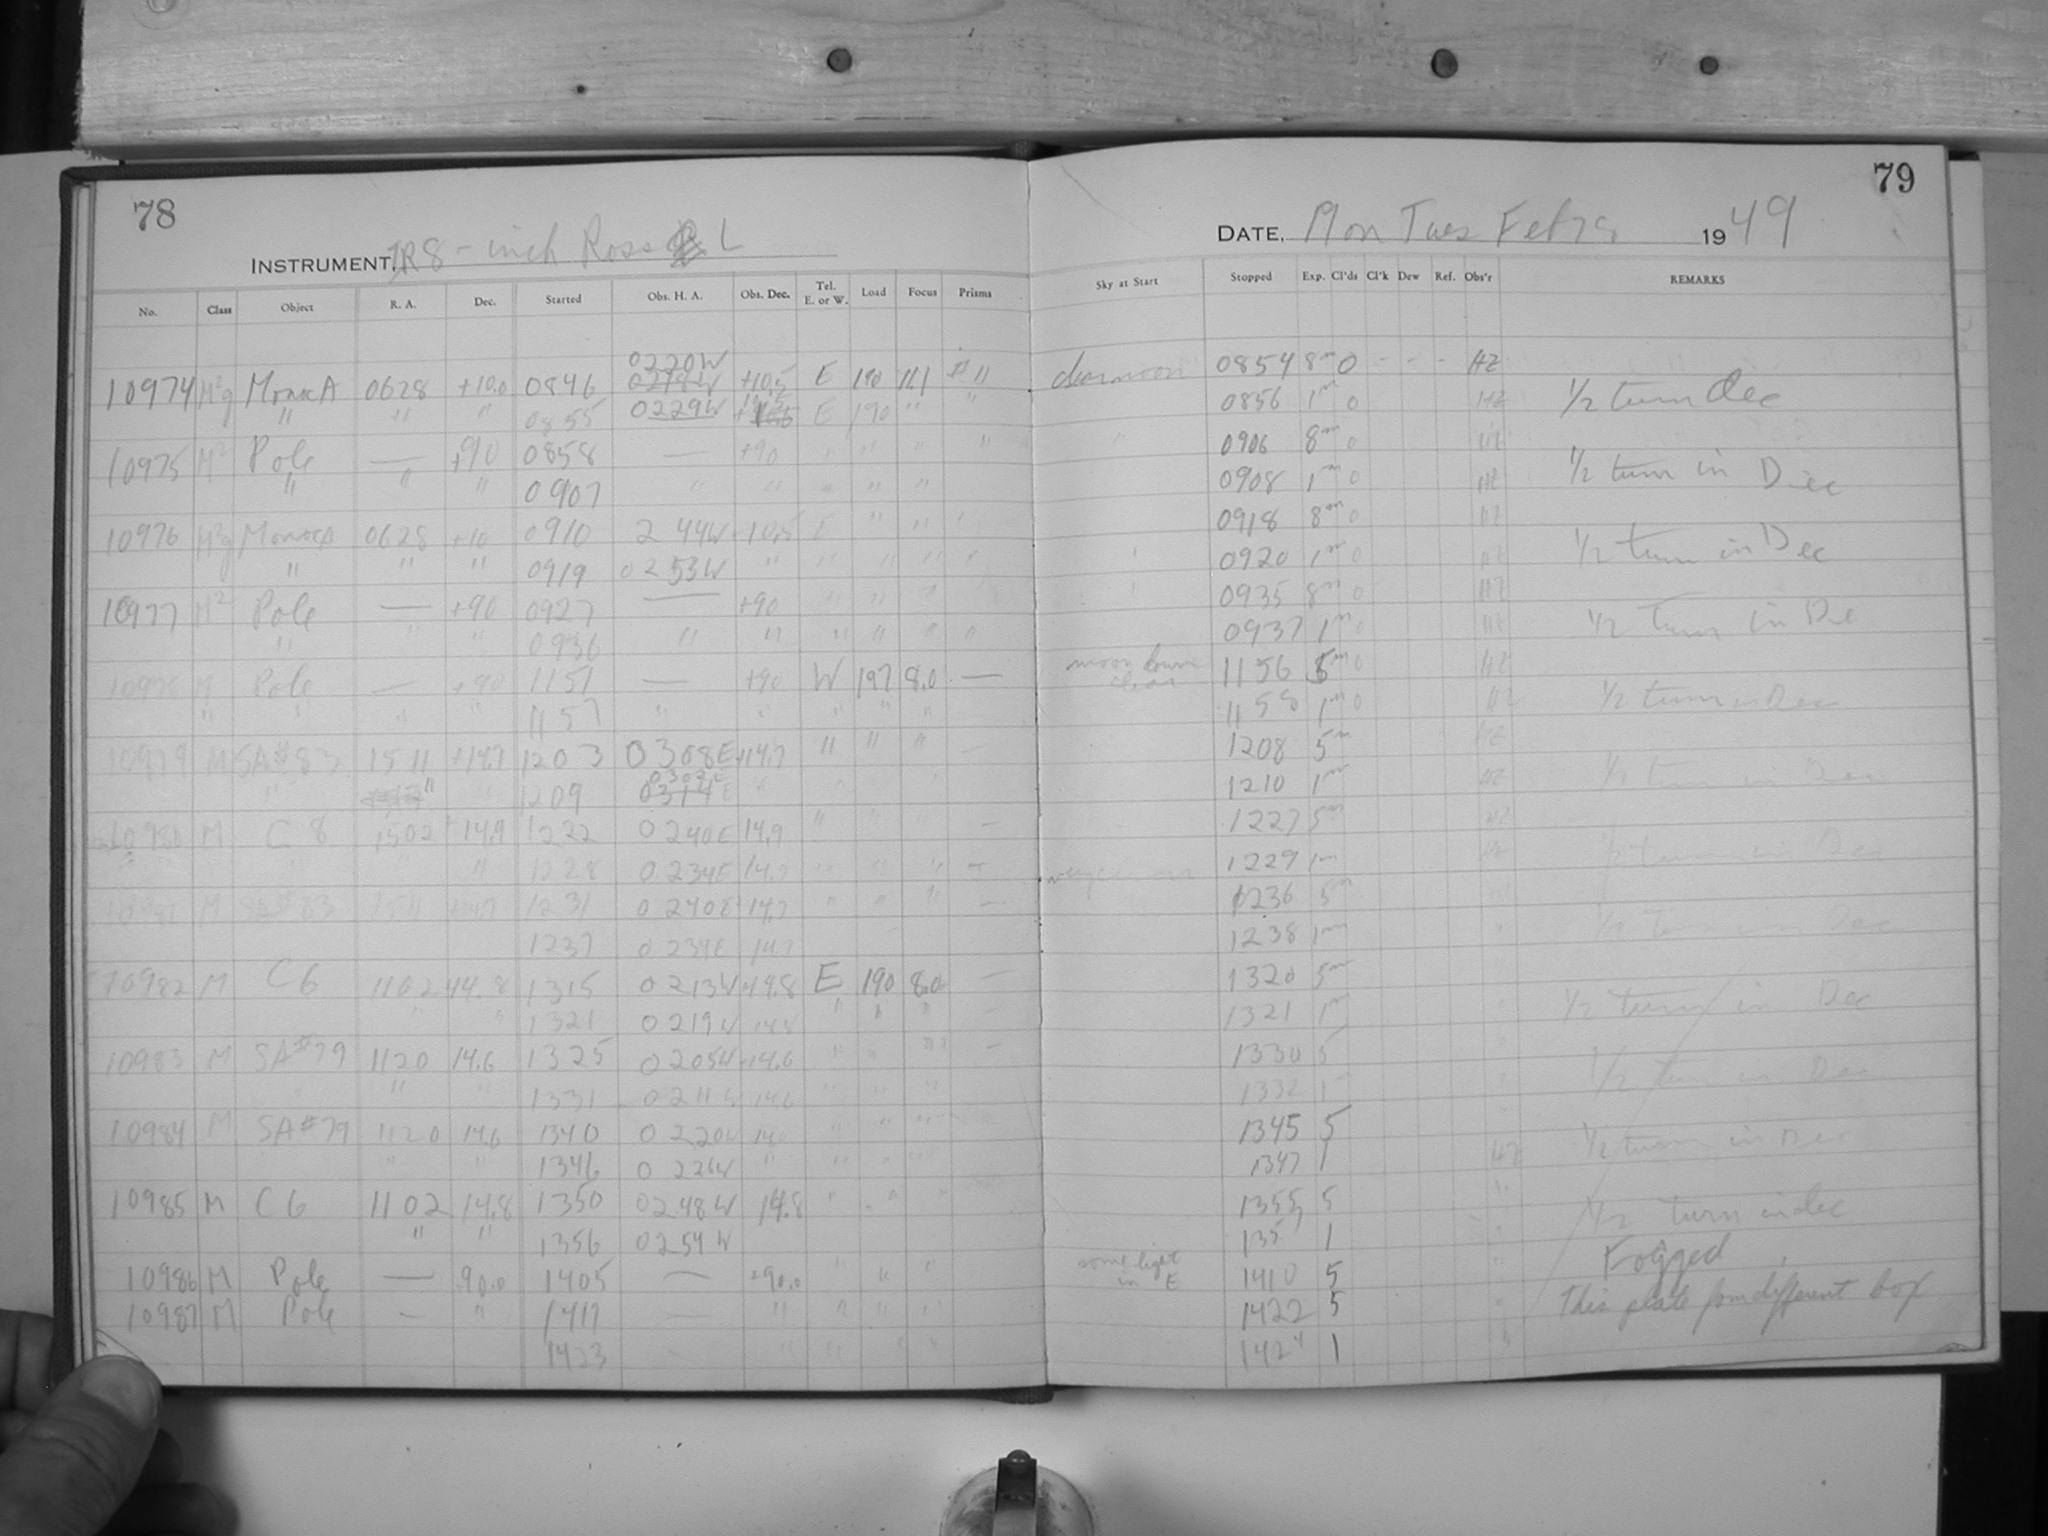 78
INSTRUMENT, IR8-inch Ross L
No. Class Object R. A. Dec. Started Obs. H. A. Obs. Dec. Tel. E. or W. Load Focus Prisms
0220W
10974 MonocA 0628 +10.0 0846 +10.5 E 190 11.1 "
" " " 0855 0229W E 190 " "
10975 M² Pole — +90 0858 — +90 " " " "
" " " 0907 " " " " "
10976 MonocA 0628 +10 0910 2 44W +10.5 E " " "
" " " 0919 0253W " " " " "
10977 M² Pole — +90 0927 — +90 " " "
" " " 0936 " " " " " "
10978 M Pole — +90 1151 — +90 W 197 8.0 —
" " " " 1157 " " " " "
10979 M SA#83 1511 +14.7 1203 0308E +14.7 " " " —
0302E
" " " 1209 0314E "
10980 M C8 1502 +14.9 1222 0240E 14.9 " " " —
" " " 1228 0234E 14.9 " " " —
M SA#83 1511 +14.7 1231 0240E 14.7 " " " —
1237 0234E 14.7
10982 M C6 1102 14.8 1315 0213W +14.8 E 190 8.0 —
" " 1321 0219W 14.8 " " " —
10983 M SA#79 1120 14.6 1325 0205W +14.6 " " " —
" " " 1331 0211W 14.6 " " "
10984 M SA#79 1120 14.6 1340 0220W " " "
" " " 1346 0226W " " " "
10985 M C6 1102 14.8 1350 0248W 14.8 " " "
" " 1356 0254W
10986 M Pole — 90.0 1405 — +90.0 " " "
10987 M Pole — " 1417 — " " " "
1423 — " " " "
79
DATE, Mon Tues Feb 1949
Sky at Start Stopped Exp. Cl'ds Cl'k Dew Ref. Obs'r REMARKS
clear moon 0854 8m 0 - - - HZ
0856 1m 0 HZ 1/2 turn Dec
" 0906 8m 0 HZ
0908 1m 0 HZ 1/2 turn in Dec
0918 8m 0 HZ
0920 1m 0 HZ 1/2 turn in Dec
0935 8m 0 HZ
0937 1m 0 HZ 1/2 turn in Dec
moon down
clear 1156 5m 0 HZ
1158 1m 0 HZ 1/2 turn in Dec
1208 5m HZ
1210 1m HZ 1/2 turn in Dec
1227 5m HZ
1229 1m HZ 1/2 turn in Dec
1236 5m
1238 1m " 1/2 turn in Dec
1320 5m "
1321 1m " 1/2 turn in Dec
1330 5 "
1332 1 " 1/2 turn in Dec
1345 5 "
1347 1 HZ 1/2 turn in Dec
1355 5 "
1357 1 " 1/2 turn in dec
some light
in E 1410 5 " Fogged
1422 5 " This plate from different box
1424 1